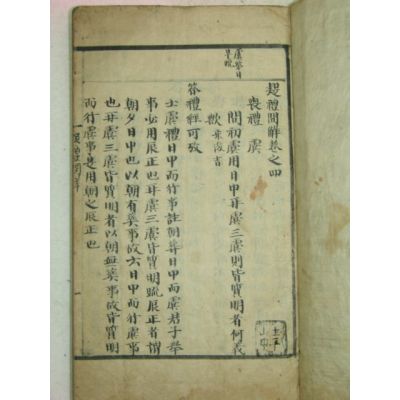 疑禮問解卷之四
喪禮 虞
問初虞用日中再虞三虞則皆質明者何義
歟
答禮經可攷
士虞禮日中而行事註朝葬日中而虞君子擧
事必用辰正也再虞三虞皆質明疏辰正者謂
朝夕日中也以朝有葬事故六日中而行虞事
也再虞三虞皆質明者以朝無葬事故皆質明
而行虞事是用朝之辰正也